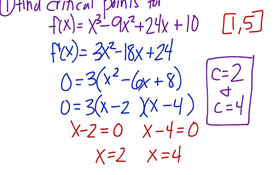 ① find critical points for
f(x) = x³ - 9x² + 24x + 10 [1,5]
f'(x) = 3x² - 18x + 24
0 = 3(x² - 6x + 8)
0 = 3(x - 2)(x - 4)
x - 2 = 0 x - 4 = 0
x = 2 x = 4
c = 2
&
c = 4